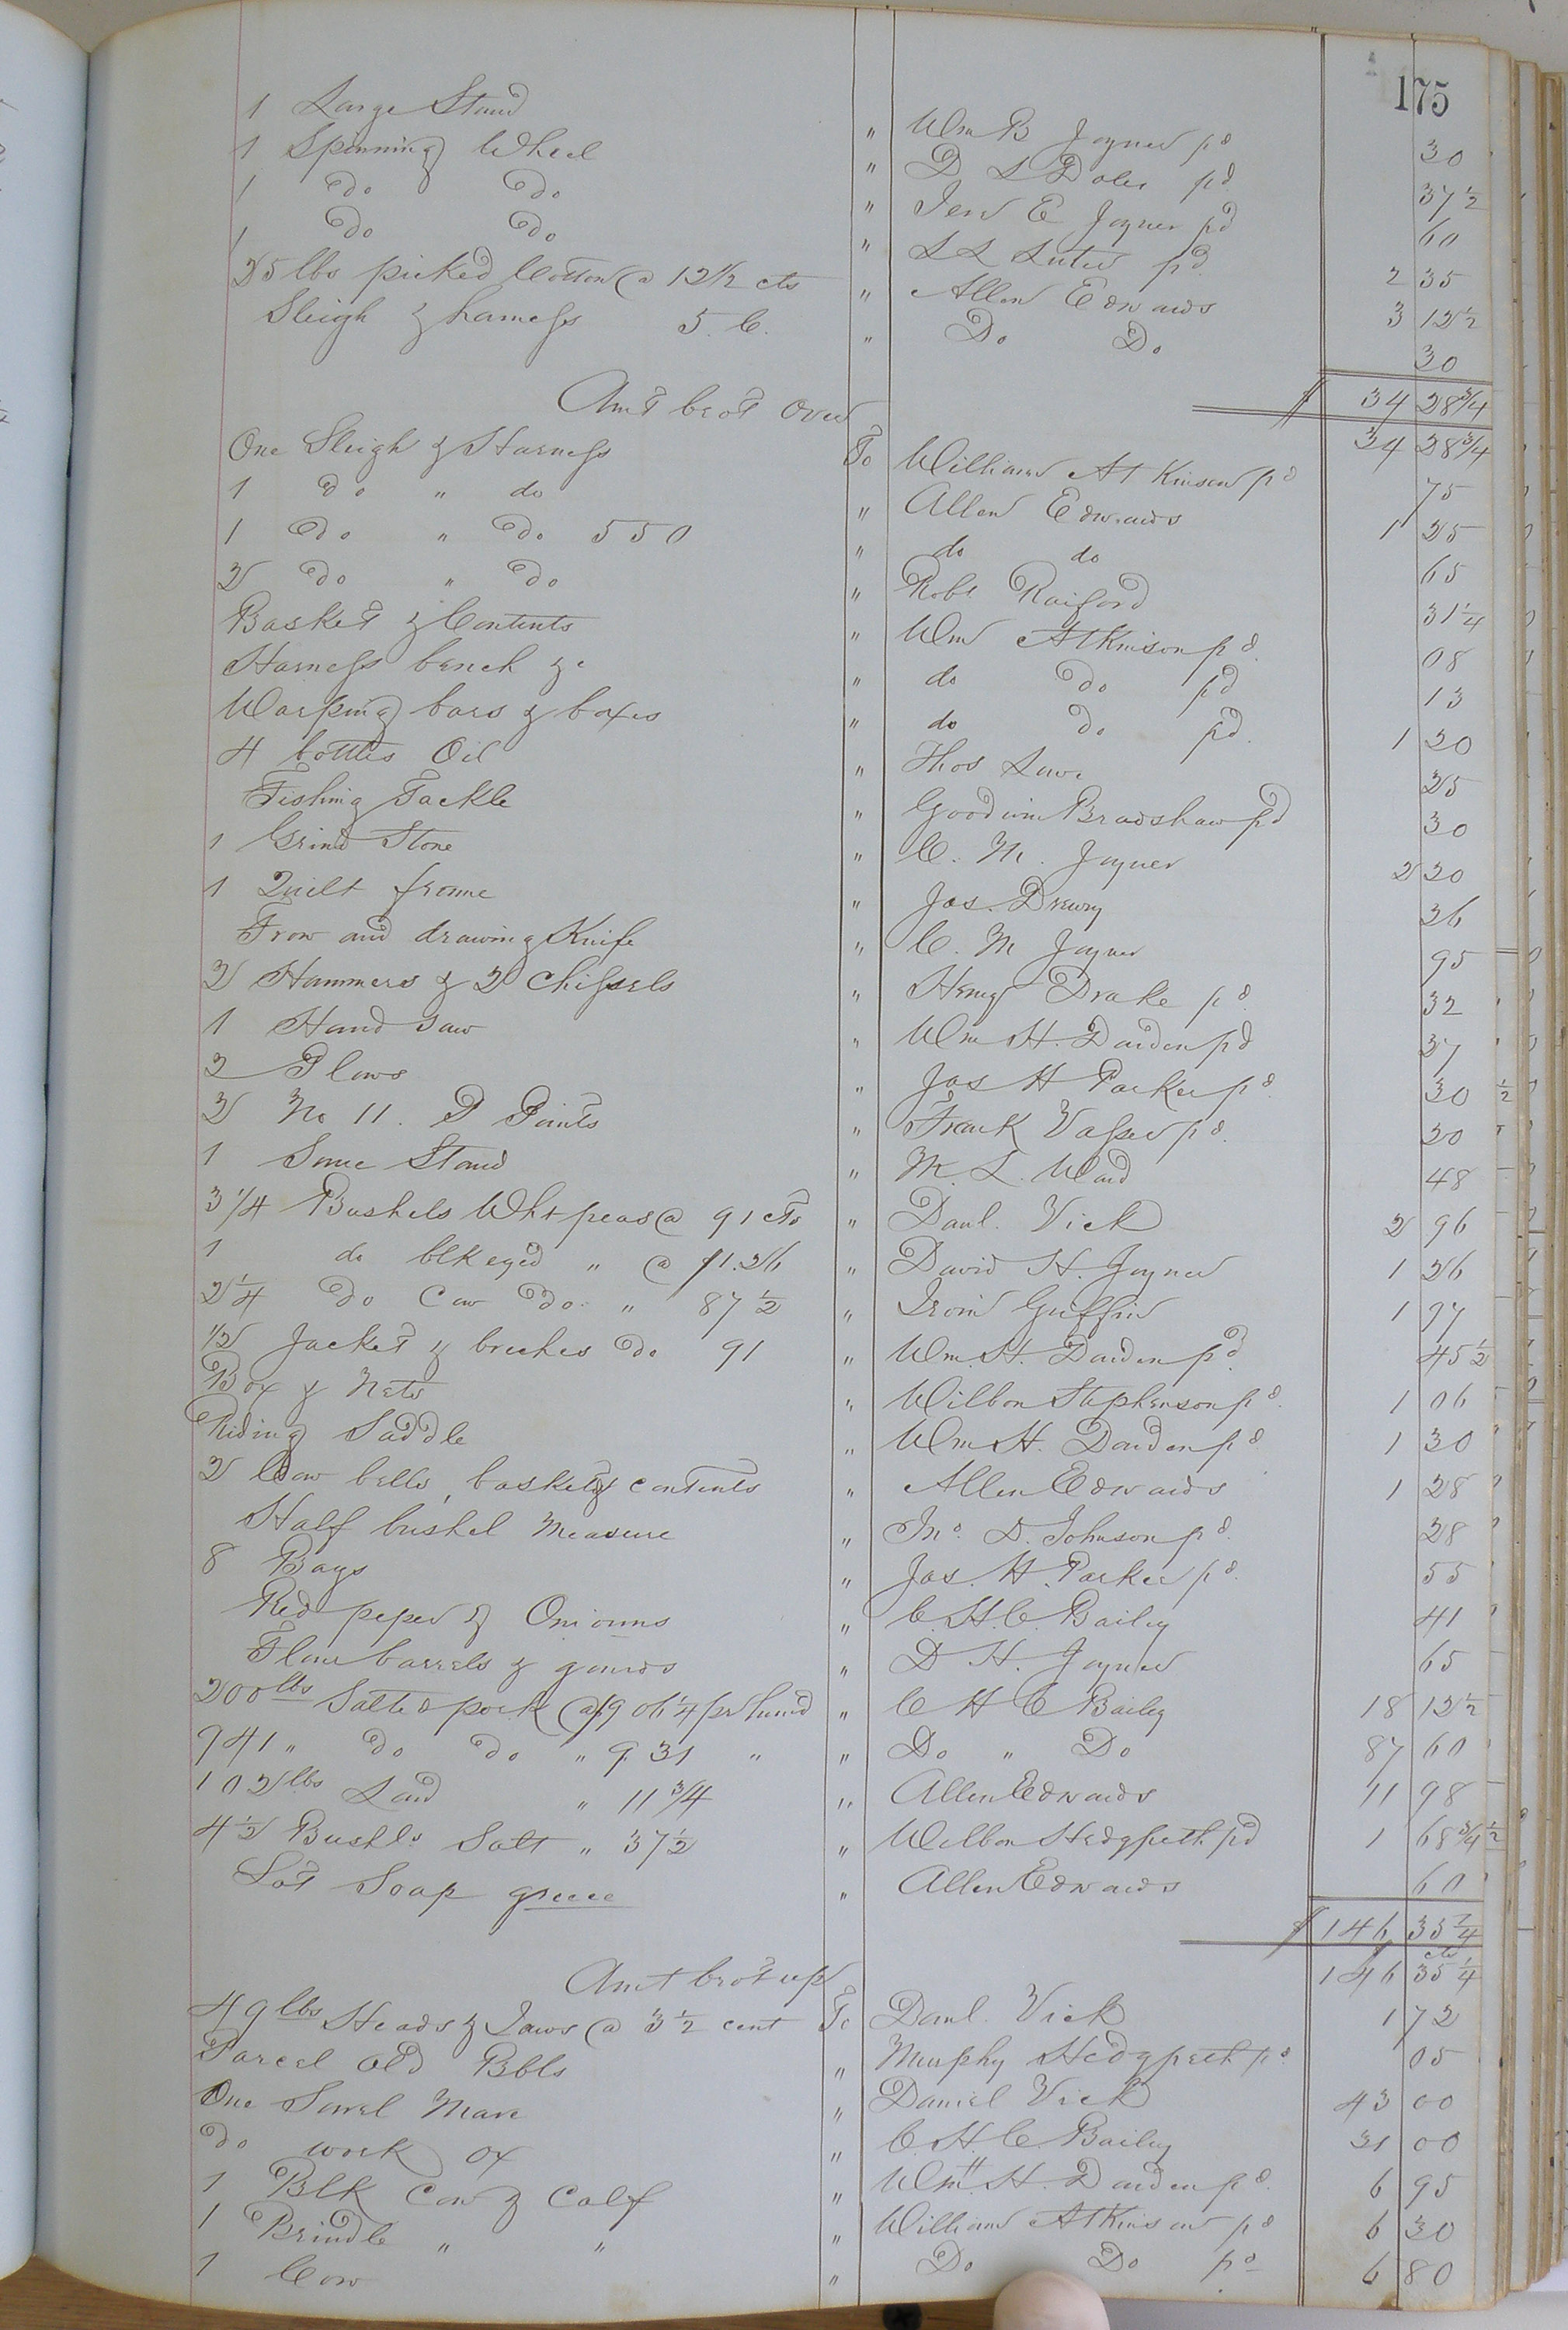 175
1 Large Stand " Wm B Joyner pd 30
1 Spinning Wheel " D L Doles pd 37 1/2
1 do do " Jere E Joyner pd 60
1 Do Do " L L Luter pd 2 35
25 lbs picked Cotton @ 12 1/2 cts " Allen Edwards 3 12 1/2
Sleigh & harness 5. C. " Do Do 30
$ 34 28 3/4
Amt brot Over 34 28 3/4
One Sleigh & Harness To William Atkinson pd 75
1 do " do " Allen Edwards 1 25
1 do " do 550 " do do 65
2 do " do " Robt Raiford 31 1/4
Basket & Contents " Wm Atkinson pd 08
Harness bench &c " do do pd 13
Warping bars & boxes " do do pd 1 20
4 bottles Oil " Thos Lawe 25
Fishing Tackle " Goodwin Bradshaw pd 30
1 Grind Stone " C. M. Joyner 2 20
1 Quilt frame " Jas. Drewry 36
Frow and drawing Knife " C. M Joyner 95
2 Hammers & 2 Chissels " Henry Drake pd 32
1 Hand saw " Wm H. Darden pd 27
2 Plows " Jas H Parker pd 30
2 No 11. P Points " Frank Vasser pd 20
1 Some Stand " M. L. Ward 48
3 1/4 Bushels Wht peas @ 91 cts " Danl. Vick 2 96
1 do blk eyed " @ $1.26 " David H. Joyner 1 26
2 1/4 do Cow do " 87 1/2 " Irvin Griffin 1 97
1/2 Jacket & breeches do 91 " Wm. H. Darden pd 45 1/2
Box & Nets " Wilbon Stephenson pd 1 06
Riding Saddle " Wm H. Darden pd 1 30
2 Cow bells, basket & contents " Allen Edwards 1 28
Half bushel Measure " Jno. D. Johnson pd 28
8 Bags " Jas. H. Parker pd 55
Red peper & Onionns " C. H. C. Bailey 41
Flour barrels & gourds " D H. Joyner 65
200 lbs Salted pork @ $9 06 1/4 pr hund " C H C Bailey 18 12 1/2
941 " do do " 9 31 " " Do " Do 87 60
102 lbs Lard " 11 3/4 " Allen Edwards 11 98
4 1/2 Bushls Salt " 37 1/2 " Wilbon Hedgpeth pd 1 68 3/4
Lot Soap greece " Allen Edwards 60
$ 146 35 1/4
Amt brot up 146 cts 35 1/4
49 lbs Heads & Jaws @ 3 1/2 cent To Danl. Vick 1 72
Parcel old Bbls " Murphy Hedgpeth pd 05
One Sorrel Mare " Daniel Vick 43 00
do work ox " C. H. C. Bailey 31 00
1 Blk Cow & Calf " Wm H. Darden pd 6 95
1 Brindle " " " William Atkinson pd 6 30
1 Cow " Do Do pd 6 80